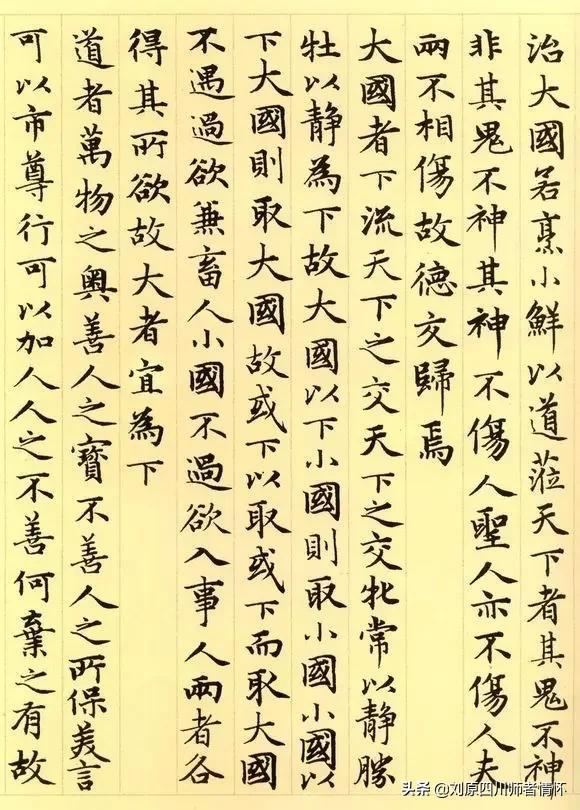 治大國若烹小鮮以道蒞天下者其鬼不神
非其鬼不神其神不傷人聖人亦不傷人夫
兩不相傷故德交歸焉
大國者下流天下之交天下之交牝常以静勝
牡以静為下故大國以下小國則取小國小國以
下大國則取大國故或下以取或下而取大國
不遇過欲兼畜人小國不過欲入事人兩者各
得其所欲故大者宜為下
道者萬物之奥善人之寶不善人之所保美言
可以市尊行可以加人人之不善何棄之有故
头条 @刘原四川师者情怀